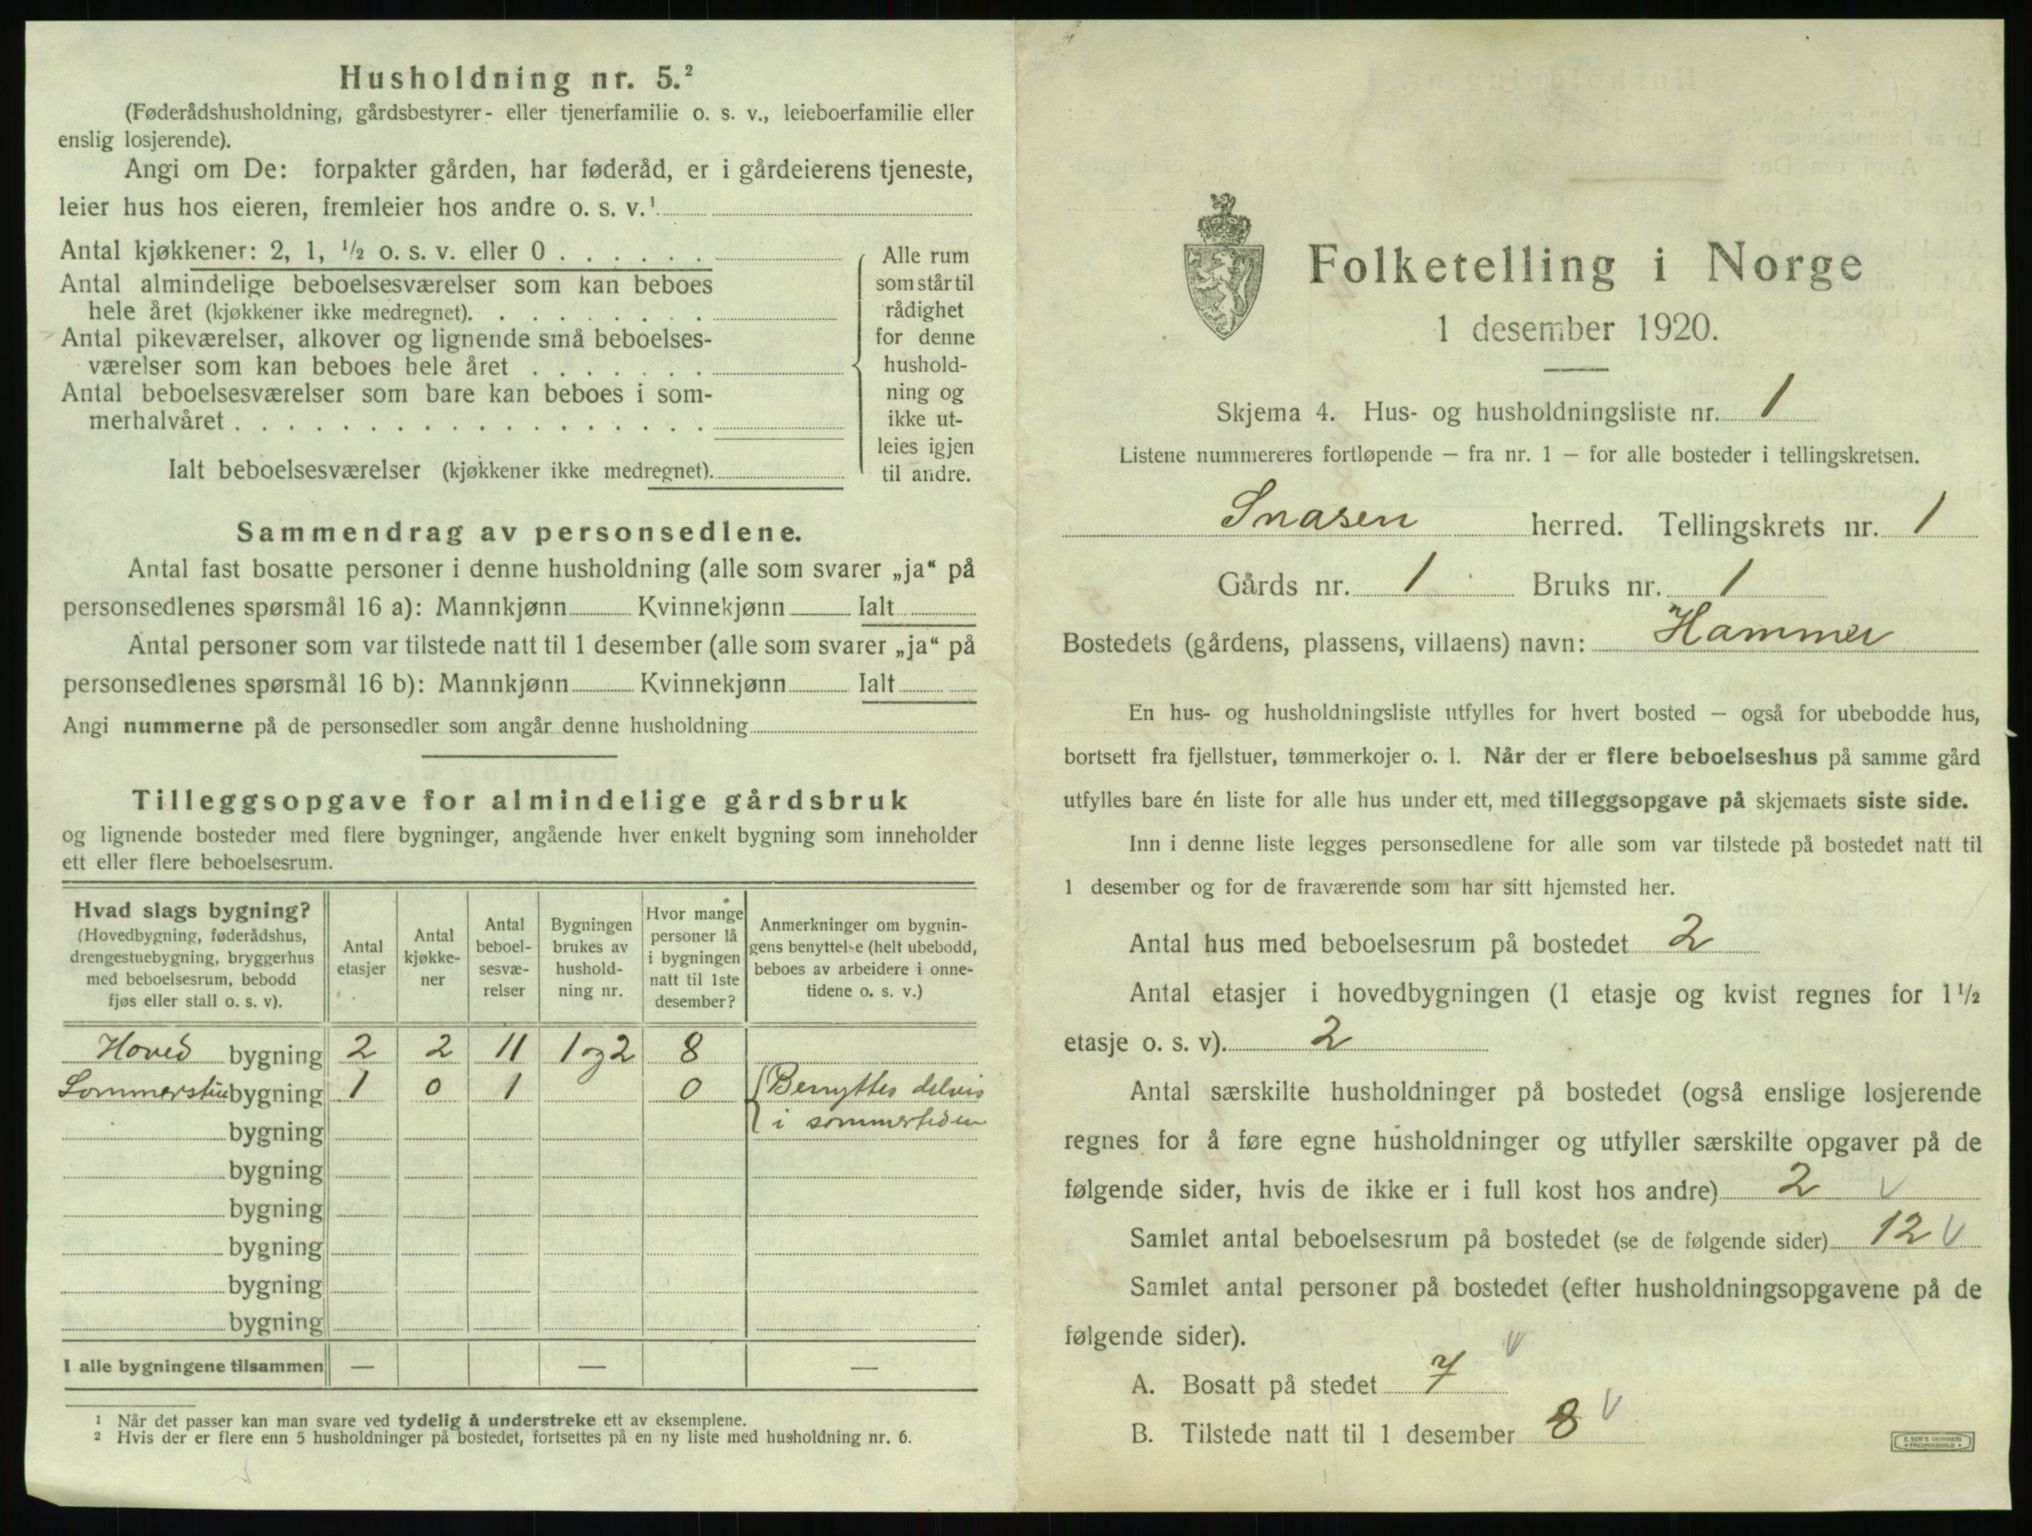 Husholdning nr. 5.²
(Føderådshusholdning, gårdsbestyrer- eller tjenerfamilie o. s. v., leieboerfamilie eller
enslig losjerende).
Angi om De: forpakter gården, har føderåd, er i gårdeierens tjeneste,
leier hus hos eieren, fremleier hos andre o. s. v.¹
Antal kjøkkener: 2, 1, ½ o. s. v. eller 0
Antal almindelige beboelsesværelser som kan beboes
hele året (kjøkkener ikke medregnet).
Antal pikeværelser, alkover og lignende små beboelses-
værelser som kan beboes hele året
Antal beboelsesværelser som bare kan beboes i som-
merhalvåret
Ialt beboelsesværelser (kjøkkener ikke medregnet).
Alle rum
som står til
rådighet
for denne
hushold-
ning og
ikke ut-
leies igjen
til andre.
Sammendrag av personsedlene.
Antal fast bosatte personer i denne husholdning (alle som svarer „ja“ på
personsedlenes spørsmål 16 a): Mannkjønn Kvinnekjønn Ialt
Antal personer som var tilstede natt til 1 desember (alle som svarer „ja“ på
personsedlenes spørsmål 16 b): Mannkjønn Kvinnekjønn Ialt
Angi nummerne på de personsedler som angår denne husholdning
Tilleggsopgave for almindelige gårdsbruk
og lignende bosteder med flere bygninger, angående hver enkelt bygning som inneholder
ett eller flere beboelsesrum.
Hvad slags bygning?
(Hovedbygning, føderådshus,
drengestuebygning, bryggerhus
med beboelsesrum, bebodd
fjøs eller stall o. s. v).
Antal
etasjer
Antal
kjøkke-
ner
Antal
beboel-
sesvæ-
relser
Bygningen
brukes av
hushold-
ning nr.
Hvor mange
personer lå
i bygningen
natt til 1ste
desember?
Anmerkninger om bygnin-
gens benyttelse (helt ubebodd,
beboes av arbeidere i onne-
tidene o. s. v.)
Hoved bygning 2 2 11 1 og 2 8
Sommerstue bygning 1 0 1 0 Benyttes delvis
bygning i sommertiden
bygning
bygning
bygning
bygning
bygning
I alle bygningene tilsammen — — —
¹ Når det passer kan man svare ved tydelig å understreke ett av eksemplene.
² Hvis der er flere enn 5 husholdninger på bostedet, fortsettes på en ny liste med husholdning nr. 6.
Folketelling i Norge
1 desember 1920.
Skjema 4. Hus- og husholdningsliste nr. 1
Listene nummereres fortløpende – fra nr. 1 – for alle bosteder i tellingskretsen.
Snasen herred. Tellingskrets nr. 1
Gårds nr. 1 Bruks nr. 1
Bostedets (gårdens, plassens, villaens) navn: Hammer
En hus- og husholdningsliste utfylles for hvert bosted – også for ubebodde hus,
bortsett fra fjellstuer, tømmerkojer o. l. Når der er flere beboelseshus på samme gård
utfylles bare én liste for alle hus under ett, med tilleggsopgave på skjemaets siste side.
Inn i denne liste legges personsedlene for alle som var tilstede på bostedet natt til
1 desember og for de fraværende som har sitt hjemsted her.
Antal hus med beboelsesrum på bostedet 2
Antal etasjer i hovedbygningen (1 etasje og kvist regnes for 1½
etasje o. s. v). 2
Antal særskilte husholdninger på bostedet (også enslige losjerende
regnes for å føre egne husholdninger og utfyller særskilte opgaver på de
følgende sider, hvis de ikke er i full kost hos andre) 2 v
Samlet antal beboelsesrum på bostedet (se de følgende sider) 12 v
Samlet antal personer på bostedet (efter husholdningsopgavene på de
følgende sider).
A. Bosatt på stedet 7 v
B. Tilstede natt til 1 desember 8 v